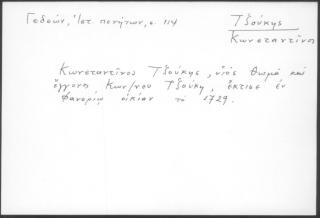 Γεδεών, Ἱστ. πενήτων, σ. 114
Τζούκης
Κωνσταντῖνος
Κωνσταντῖνος Τζούκης, υἱὸς Θωμᾶ καὶ
ἔγγονος Κων/νου Τζούκη, ἔκτισε ἐν
Φαναρίῳ οἰκίαν τὸ 1729.